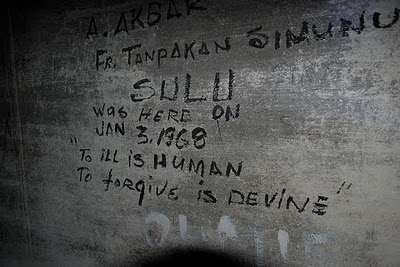 A. AKBAR
FR. TANPAKAN SIMUNU
SULU
WAS HERE ON
JAN 3. 1968
"TO ILL IS HUMAN
TO forgive is DEVINE"